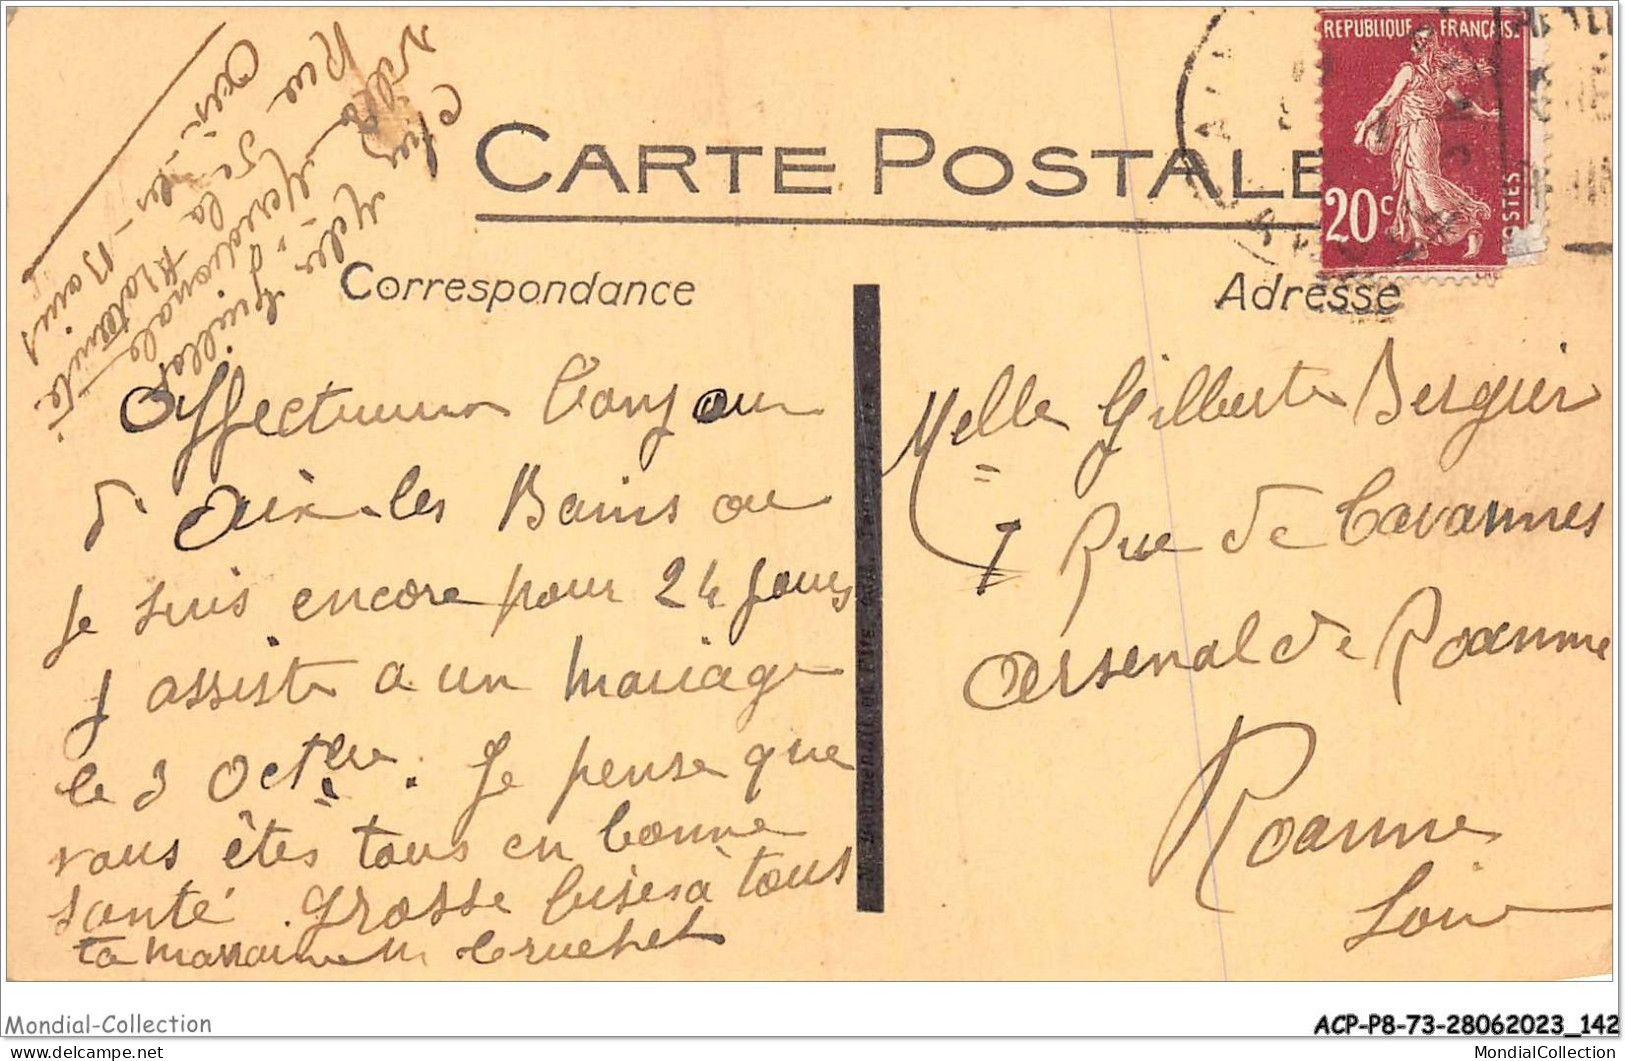 Chez Melle Guillot
Villa Mereduonale
Rue de la Maternité
Aix-les-Bains
CARTE POSTALE
REPUBLIQUE FRANÇAISE
20c
POSTES
Correspondance
Adresse
Affectueux bonjour
d'Aix-les Bains ou
je suis encore pour 24 jours
j assiste a un mariage
le 3 Octbre. Je pense que
vous êtês tous en bonne
santé. Grosse bises à tous
ta marraine M Cruchet
Melle Gilberte Bergier
7 Rue de Cavannes
Arsenal de Roanne
Roanne
Loire
Mondial-Collection
ACP-P8-73-28062023_142
delcampe.net
MondialCollection